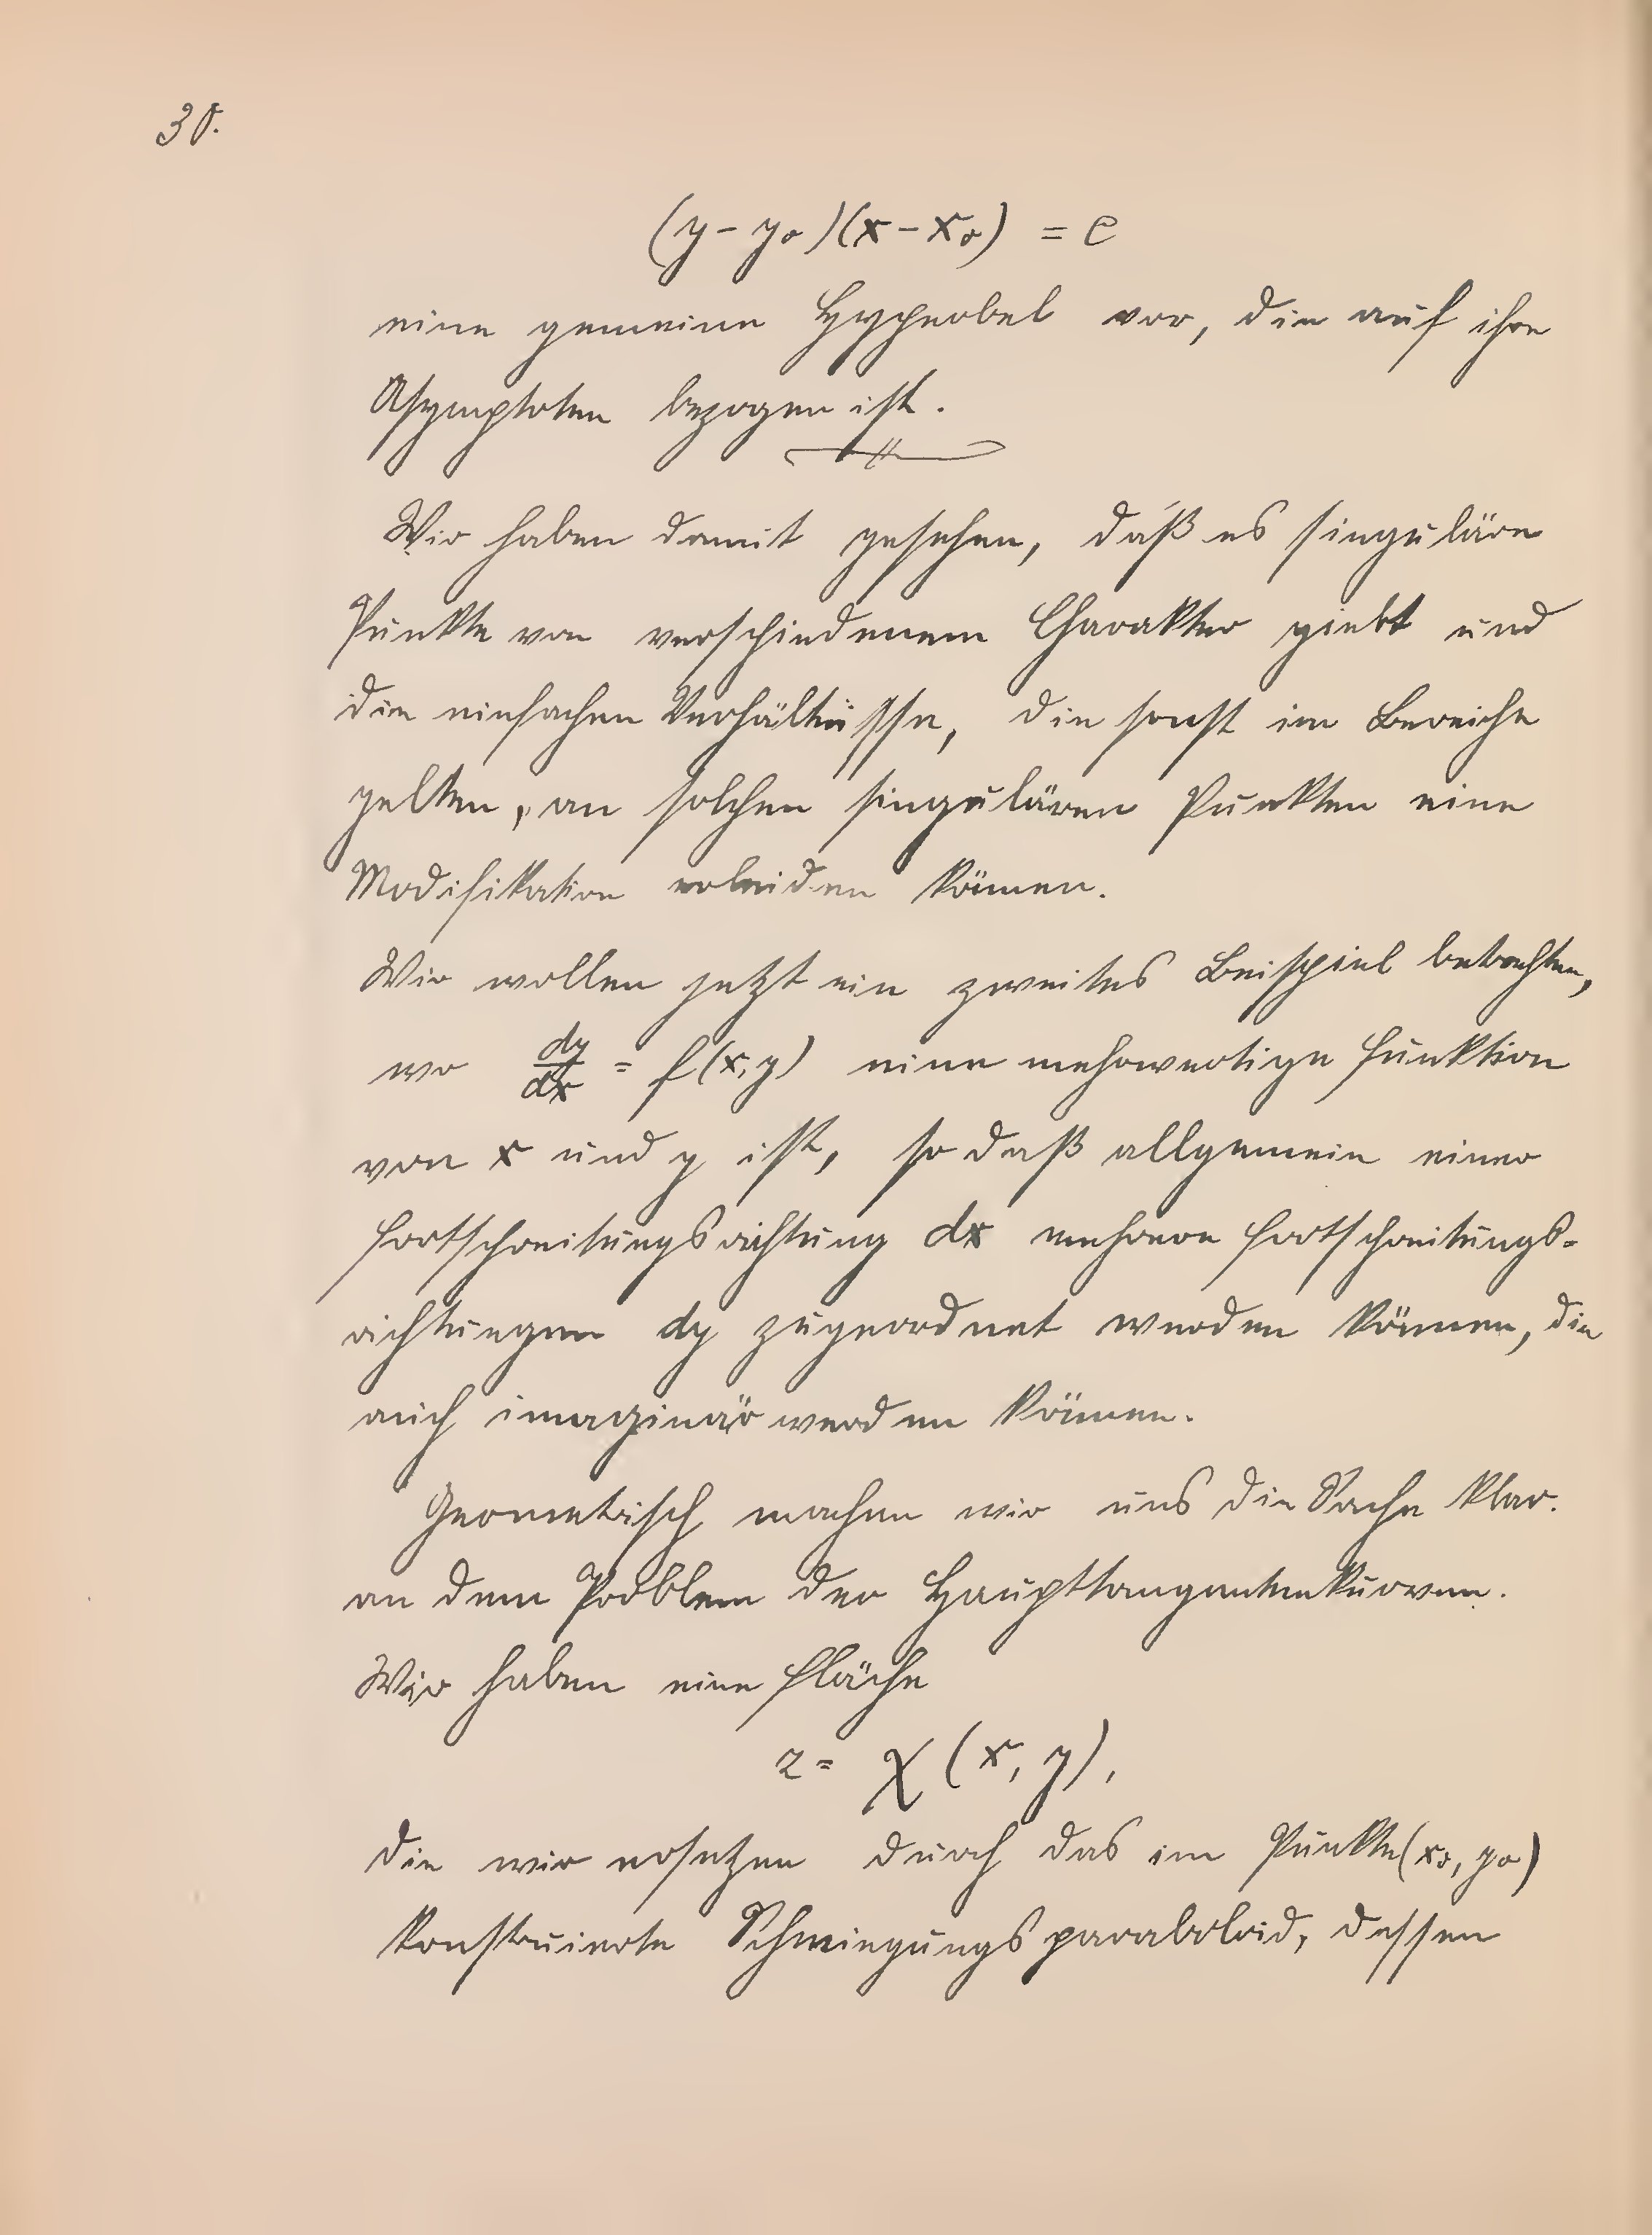 38.
(y - y₀)(x - x₀) = C
eine gemeine Hyperbel vor, die auf ihre
Asymptoten bezogen ist.
Wir haben damit gesehen, daß es singuläre
Punkte von verschiedenem Charakter giebt und
die einfachen Verhältnisse, die sonst im Bereiche
gelten, an solchen singulären Punkten eine
Modifikation erleiden können.
Wir wollen jetzt ein zweites Beispiel betrachten,
wo dy/dx = f(x, y) eine mehrwertige Funktion
von x und y ist, so daß allgemein einer
Fortschreitungsrichtung dx mehrere Fortschreitungs-
richtungen dy zugeordnet werden können, die
auch imaginär werden können.
Geometrisch machen wir uns die Sache klar.
an dem Problem der Haupttangentenkurven.
Wir haben eine Fläche
z = χ(x, y),
die wir ersetzen durch das im Punkte (x₀, y₀)
konstruierte Schmiegungsparaboloid, dessen